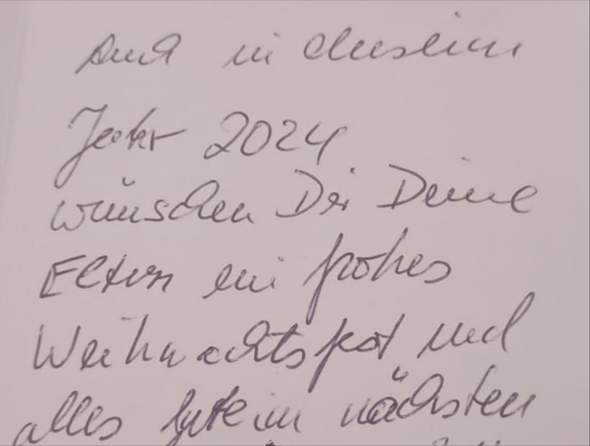 Auch in diesem
Jahr 2024
wünschen Dir Deine
Eltern ein frohes
Weihnachtsfest und
alles gute im nächsten